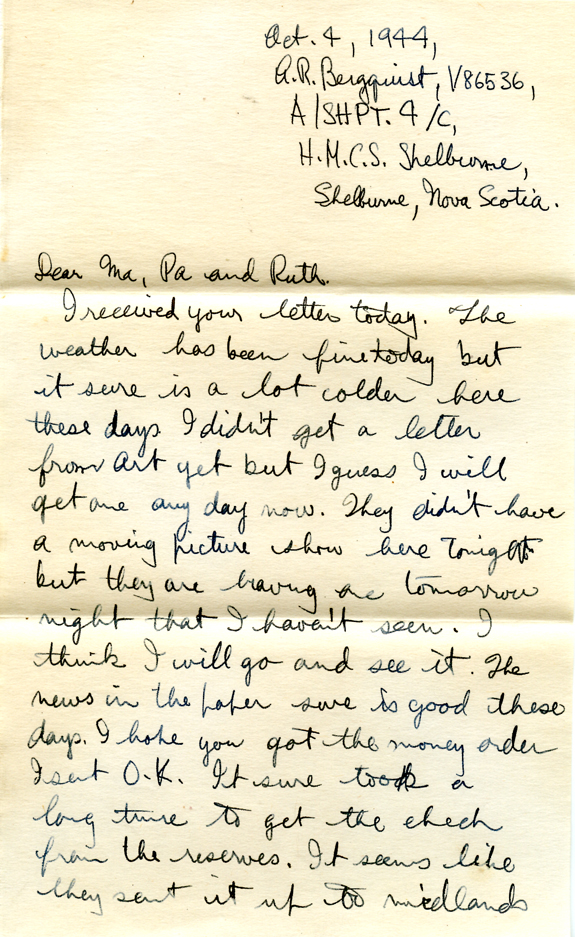 Oct. 4, 1944,
A.R. Bergquist, V86536,
A/SHPT. 4/C,
H.M.C.S. Shelburne,
Shelburne, Nova Scotia.
Dear Ma, Pa and Ruth.
I received your letter today. The
weather has been fine today but
it sure is a lot colder here
these days I didn't get a letter
from Art yet but I guess I will
get one any day now. They didn't have
a moving picture show here tonight
but they are having one tomorrow
night that I haven't seen. I
think I will go and see it. The
news in the paper sure is good these
days. I hope you got the money order
I sent O.K. It sure took a
long time to get the check
from the reserves. It seems like
they sent it up to midlands